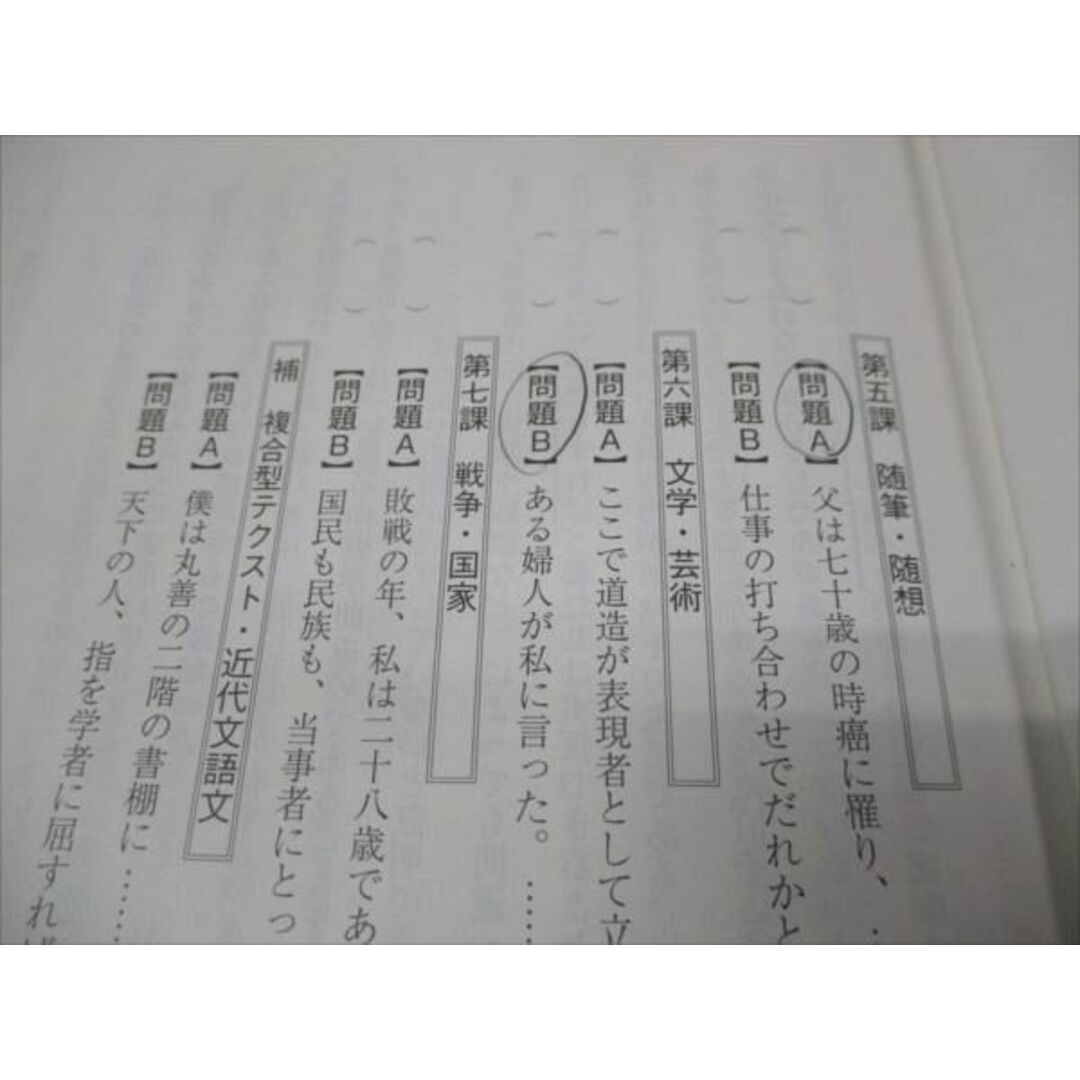 第五課 随筆・随想
【問題A】 父は七十歳の時癌に罹り、…
【問題B】 仕事の打ち合わせでだれかと
第六課 文学・芸術
【問題A】 ここで道造が表現者として立
【問題B】 ある婦人が私に言った。……
第七課 戦争・国家
【問題A】 敗戦の年、私は二十八歳であ
【問題B】 国民も民族も、当事者にとっ
補 複合型テクスト・近代文語文
【問題A】 僕は丸善の二階の書棚に……
【問題B】 天下の人、指を学者に屈すれば